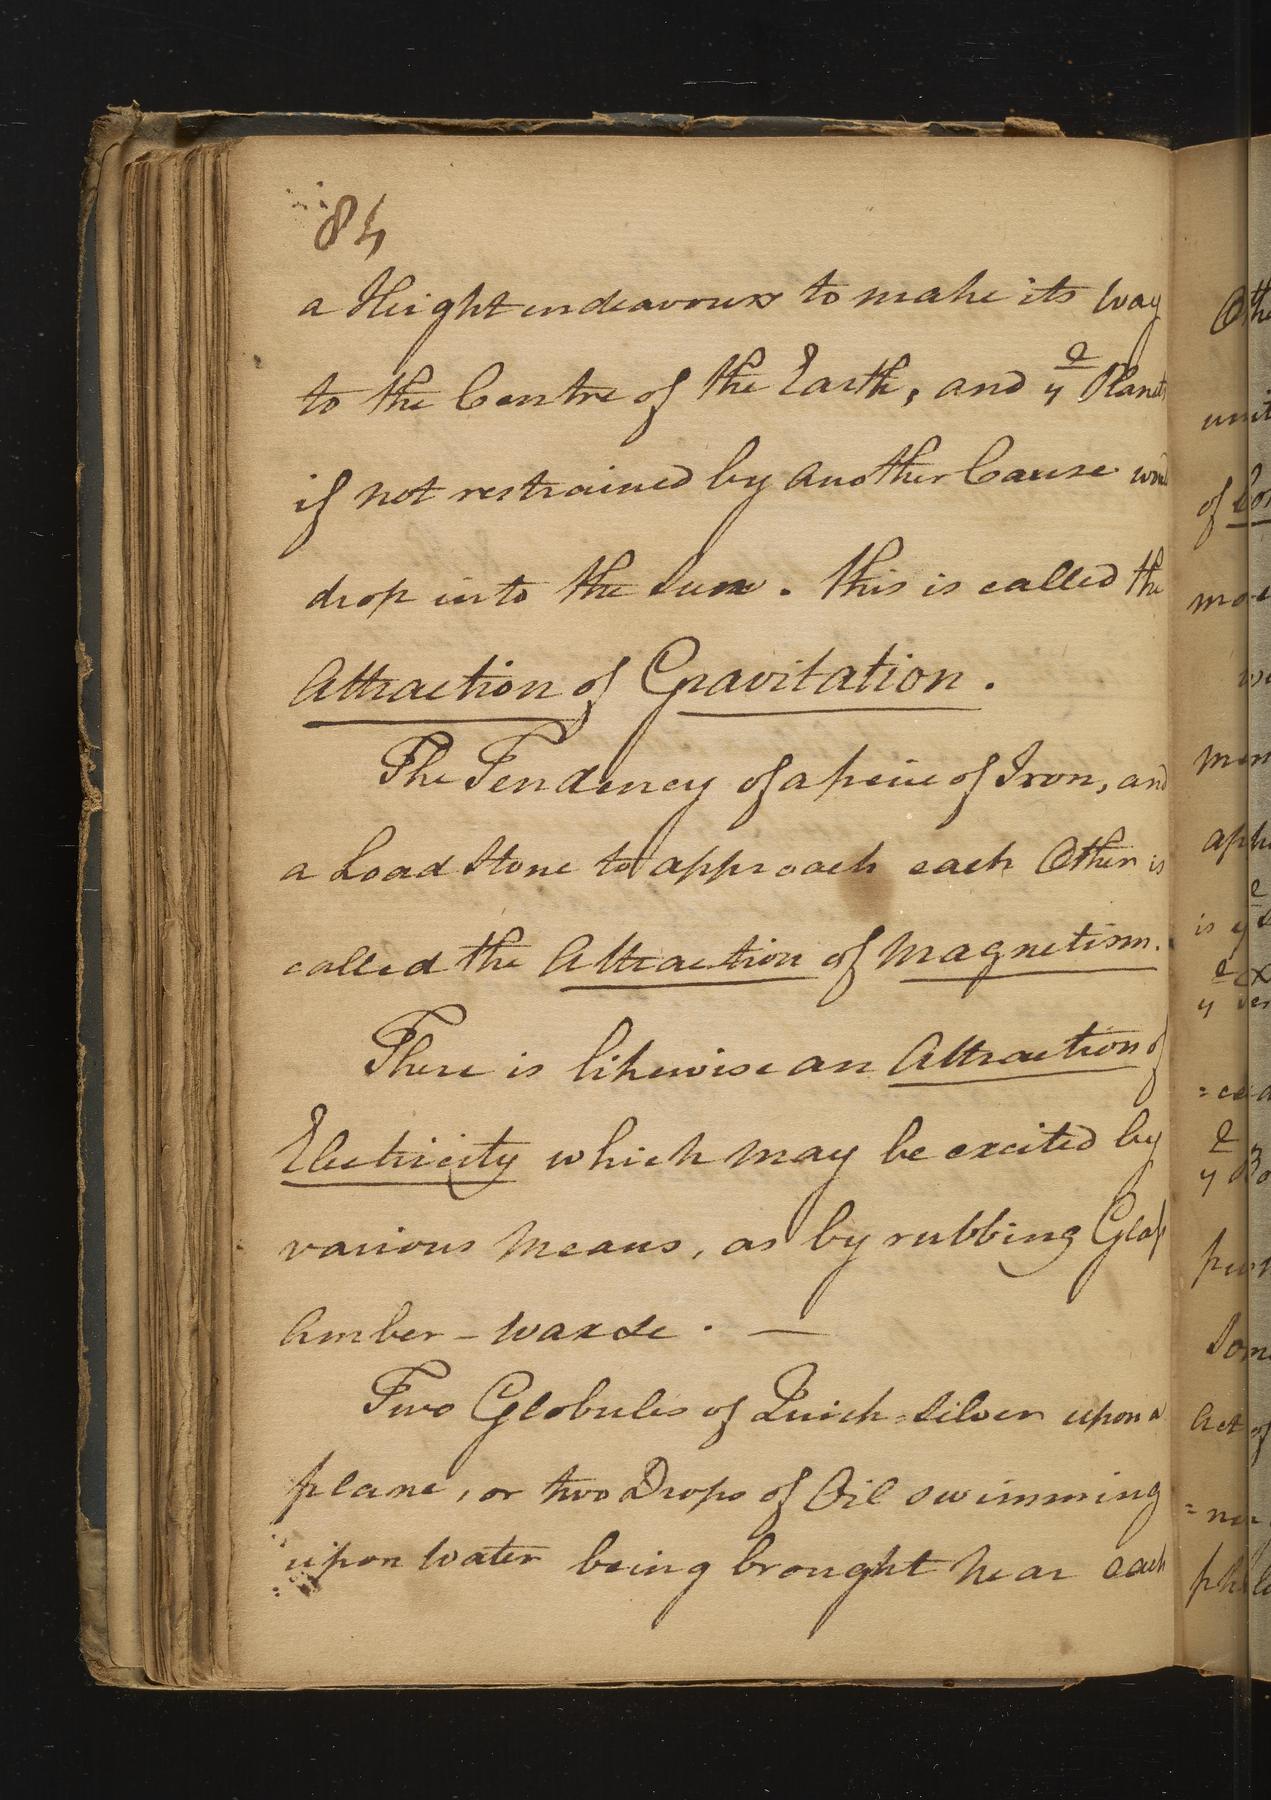 84
a Height endeavours to make its way
to the Centre of the Earth, and yᵉ Planets
if not restrained by another Cause woud
drop into the Sun. this is called the
Attraction of Gravitation.
The Tendency of a peice of Iron, and
a Load Stone to approach each Other is
called the Attraction of Magnetism.
There is likewise an Attraction of
Electricity which may be excited by
various Means, as by rubbing Glaſs
Amber - wax &c. —
Two Globules of Quick=silver upon a
plane, or two Drops of Oil swimming
upon Water being brought Near each